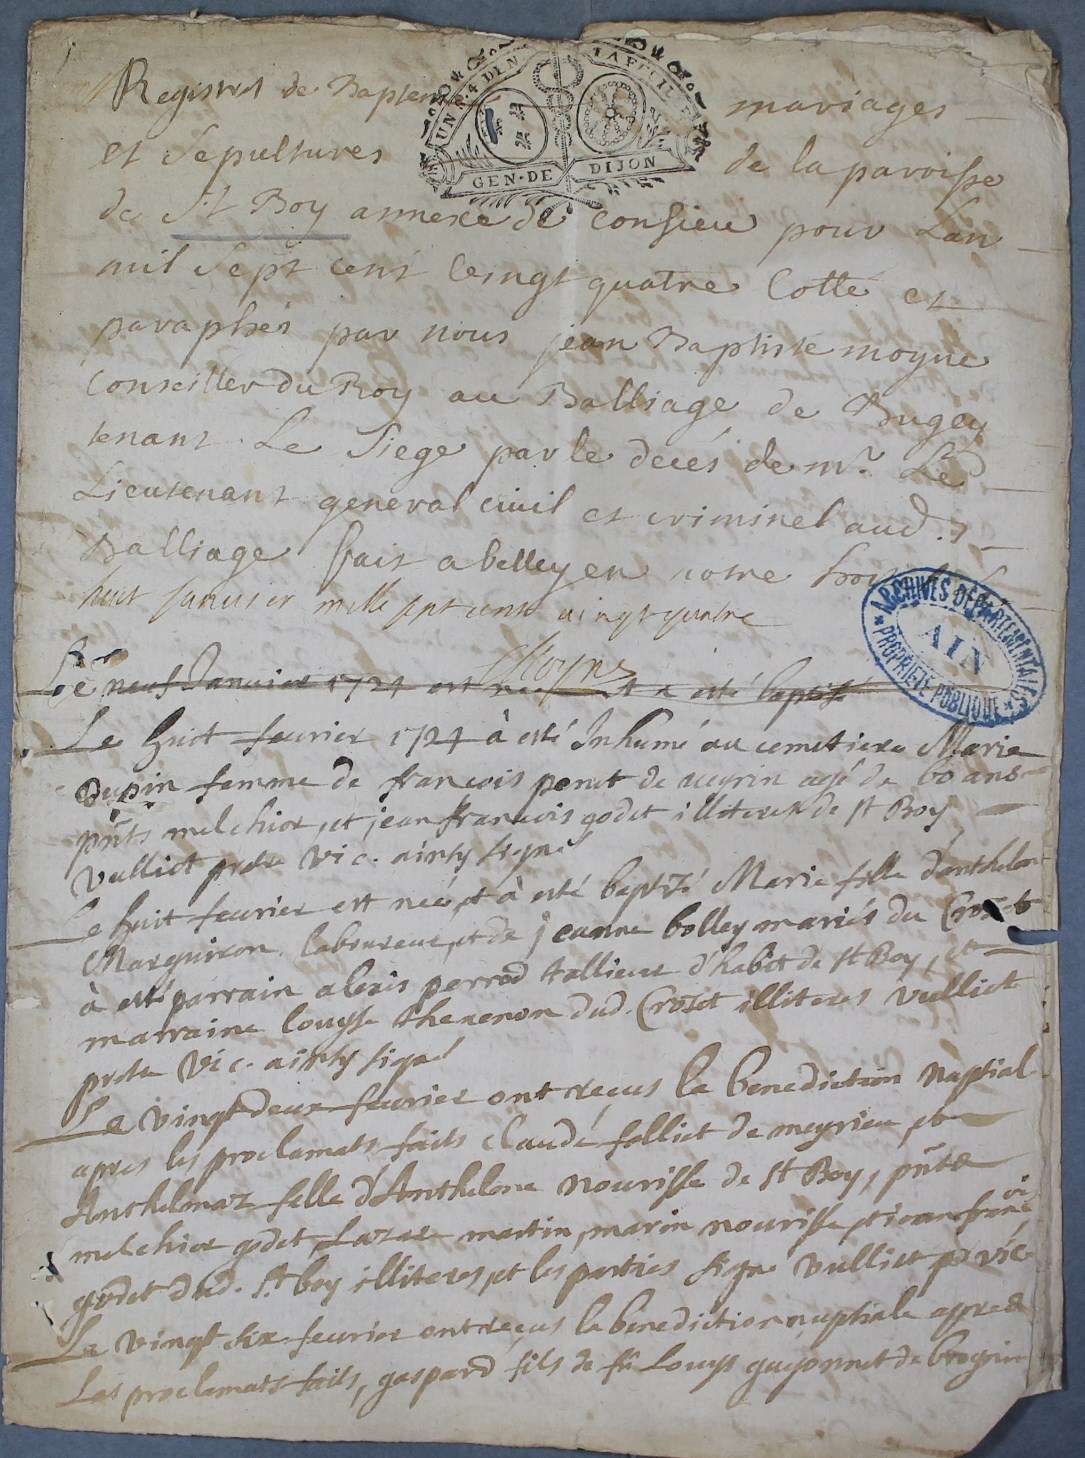 Registres de Baptemes mariages
UN S. 4 DEN. LA FEUILLE
GEN. DE DIJON
et sepultures de la paroisse
de St Boy annexe de Consieu pour Lan
mil sept cent vingt quatre Cotté et
paraphés par nous jean Baptiste moyne
Conseiller du Roy au Balliage de Bugey
tenant Le siege par le decés de mr. Le
Lieutenant general civil et criminel aud.
Balliage fait a belley en notre hotel le
huit janvier mille sept cent vingt quatre
Moyne
ARCHIVES DÉPARTEMENTALES
AIN
PROPRIÉTÉ PUBLIQUE
Le neuf Janvier 1724 est né et a esté baptisé
Le huit fevrier 1724 à esté Inhumé au cemetiere Marie
Dupin femme de francois ponet de meyrin agé de 60 ans
pnts melchior, et jean francois godet illiteres de st Boy
Vulliet prtre vic. ainsy signé
Le huit fevrier est neé, et à esté baptizé Marie fille d'anthelme
Marguiron laboureur, et de jeanne bolley mariés du Crosct
à esté parrain alexis perrod tallieur d'habit de st Boy, et
marraine louyse thevenon dud. Crosot illiteres Vulliet
prtre Vic. ainsy signé
Le vingt deux fevrier ont recus la benediction nuptial
apres les proclamats faits claude folliet de meyrieu, et
Anthelmaz fille d'Anthelme nourisse de st Boy, pnts
melchior godet, Lazare martin, marin nourisse, et jean francoi
godet dud. st boy illiteres, et les parties signé Vulliet p. vic.
Le vingt six fevrier ont recus la benediction nuptiale apres
Les proclamats faits, gaspard fils de fû Louys guyonnet de bregnin